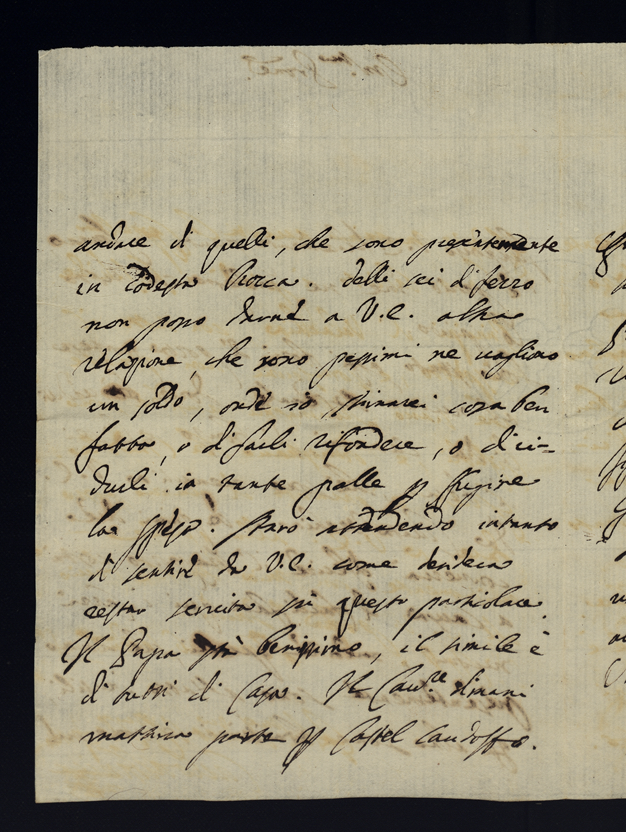 andare di quelli, che sono presentemente
in codesta Rocca. delli sei di ferro
non posso darne a V.E. altra
relazione, che sono pessimi ne vagliono
un soldo, onde io stimarei cosa ben
fatta, o di farli rifondere, o di ri-
durli in tante palle p fugire
la spesa. Starò attendendo intanto
di sentire da V.E. come desidera
restar servita in questo particolare.
Il Papa stà benissimo, il simile è
di tutti di Casa. Il Cav.re dimani
mattina parte p Castel Candolfo.